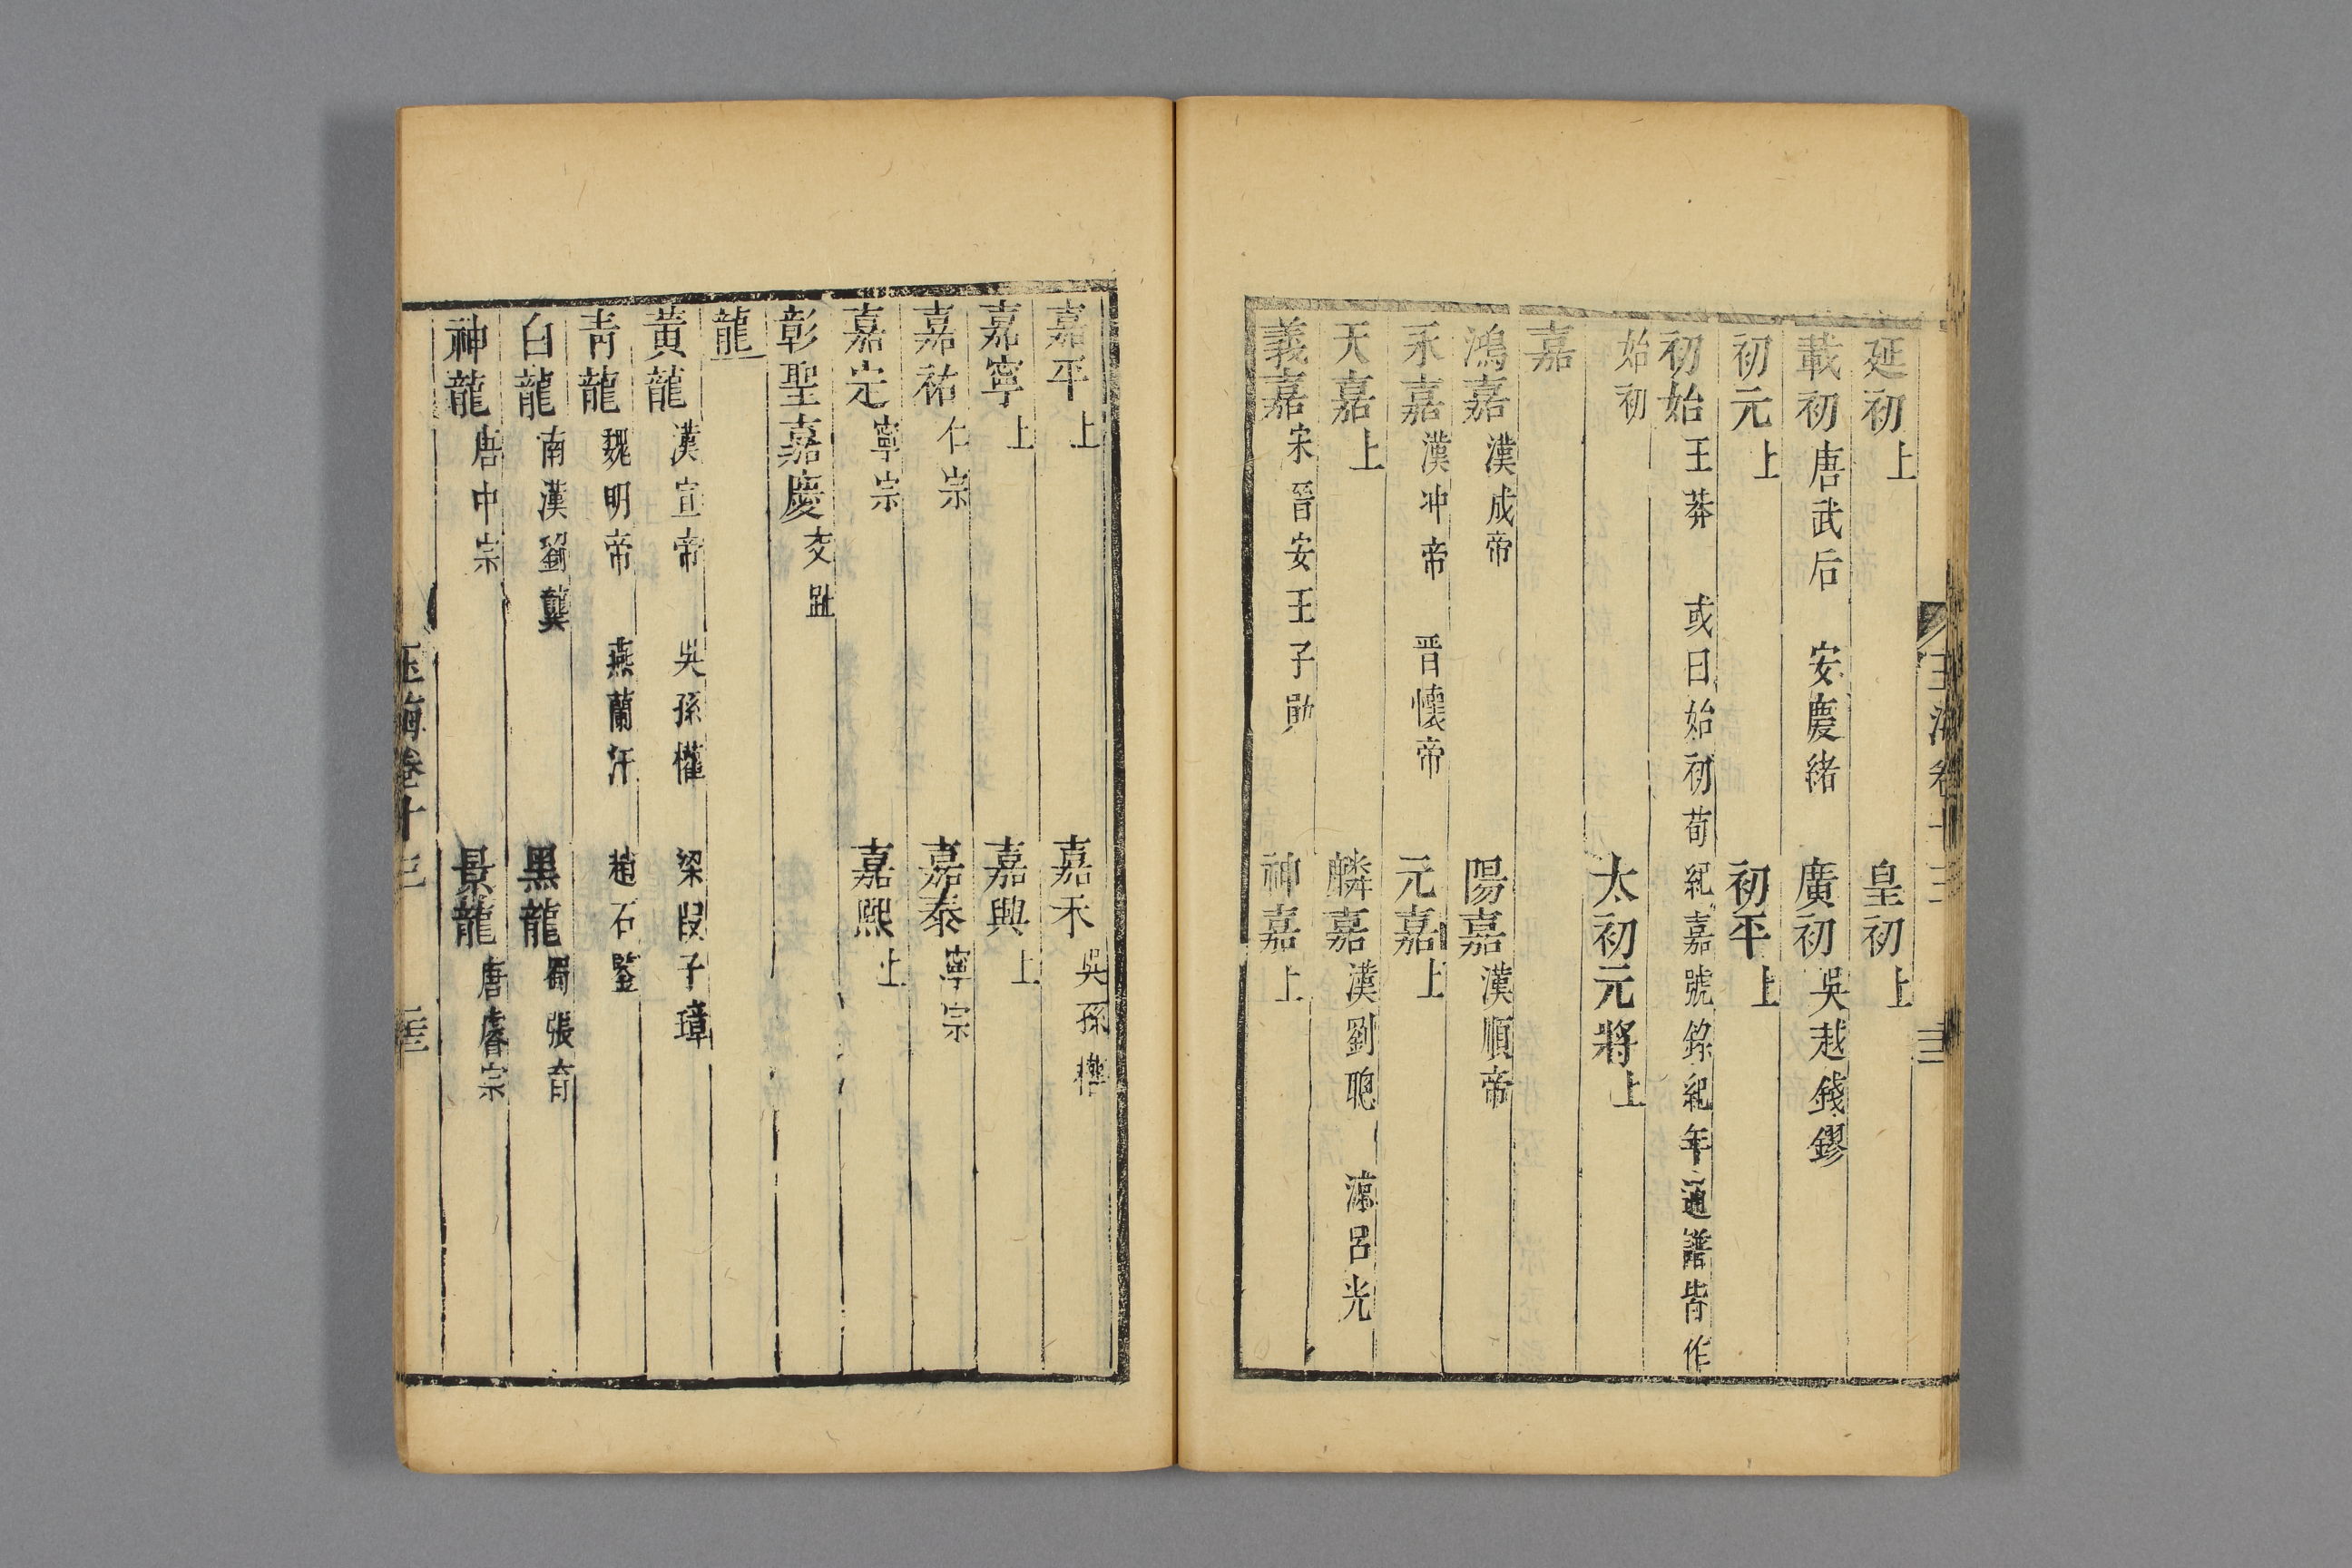 延初上　皇初上
載初唐武后　安慶緒　廣初吳越錢鏐
初元上　初平上
初始王莽　或曰始初荀紀嘉號錄紀年通譜皆作
始初　太初元將上
嘉
鴻嘉漢成帝　陽嘉漢順帝
永嘉漢冲帝　晋懷帝　元嘉上
天嘉上　麟嘉漢劉聰　涼呂光
義嘉宋晉安王子勛　神嘉上
嘉平上　嘉禾吳孫權
嘉寧上　嘉興上
嘉祐仁宗　嘉泰寧宗
嘉定寧宗　嘉熙上
彰聖嘉慶交趾
龍
黃龍漢宣帝　吳孫權　梁叚子璋
青龍魏明帝　燕蘭汗　趙石鑒
白龍南漢劉龑　黑龍蜀張育
神龍唐中宗　景龍唐睿宗
玉海卷十三